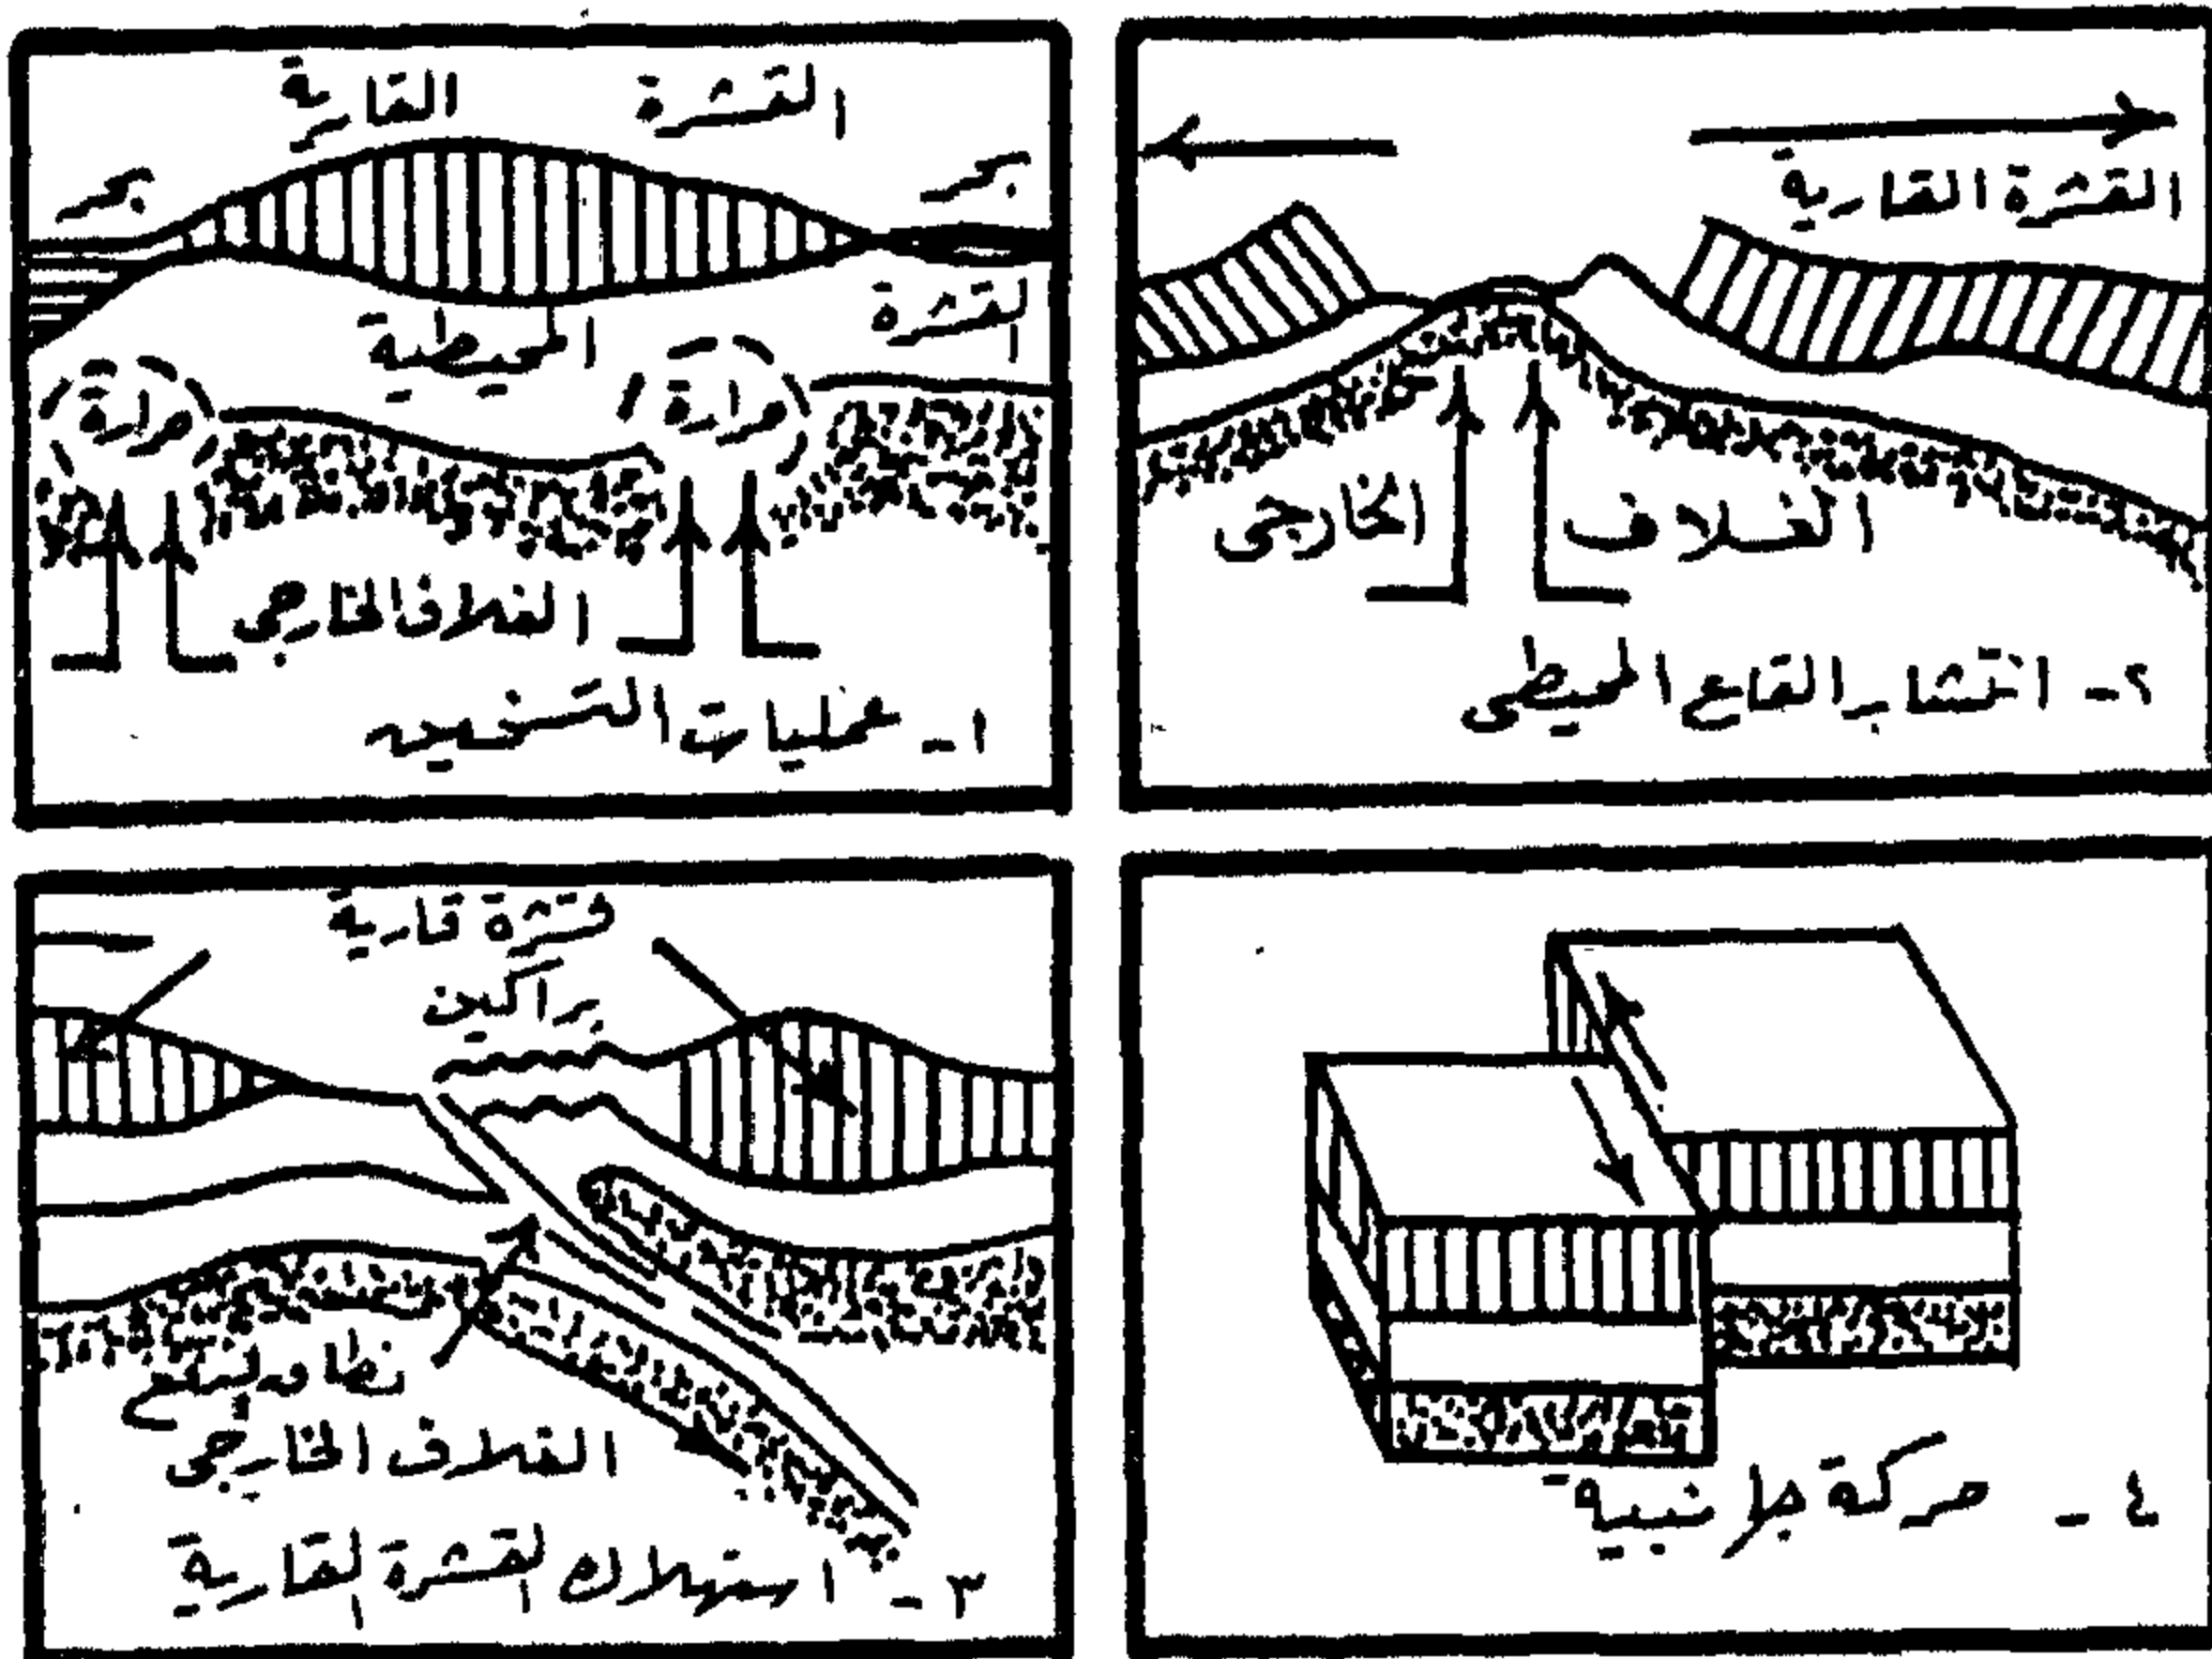 القشرة القارية
بحر
بحر
القشرة
المحيطية
حرارة
حرارة
الغلاف الخارجى
١- عمليات التسخين
القشرة القارية
الغلاف الخارجى
٢- انتشار القاع المحيطى
قشرة قارية
براكين
نطاق
الغلاف الخارجى
٣- استهلاك القشرة القارية
٤- حركة جانبية